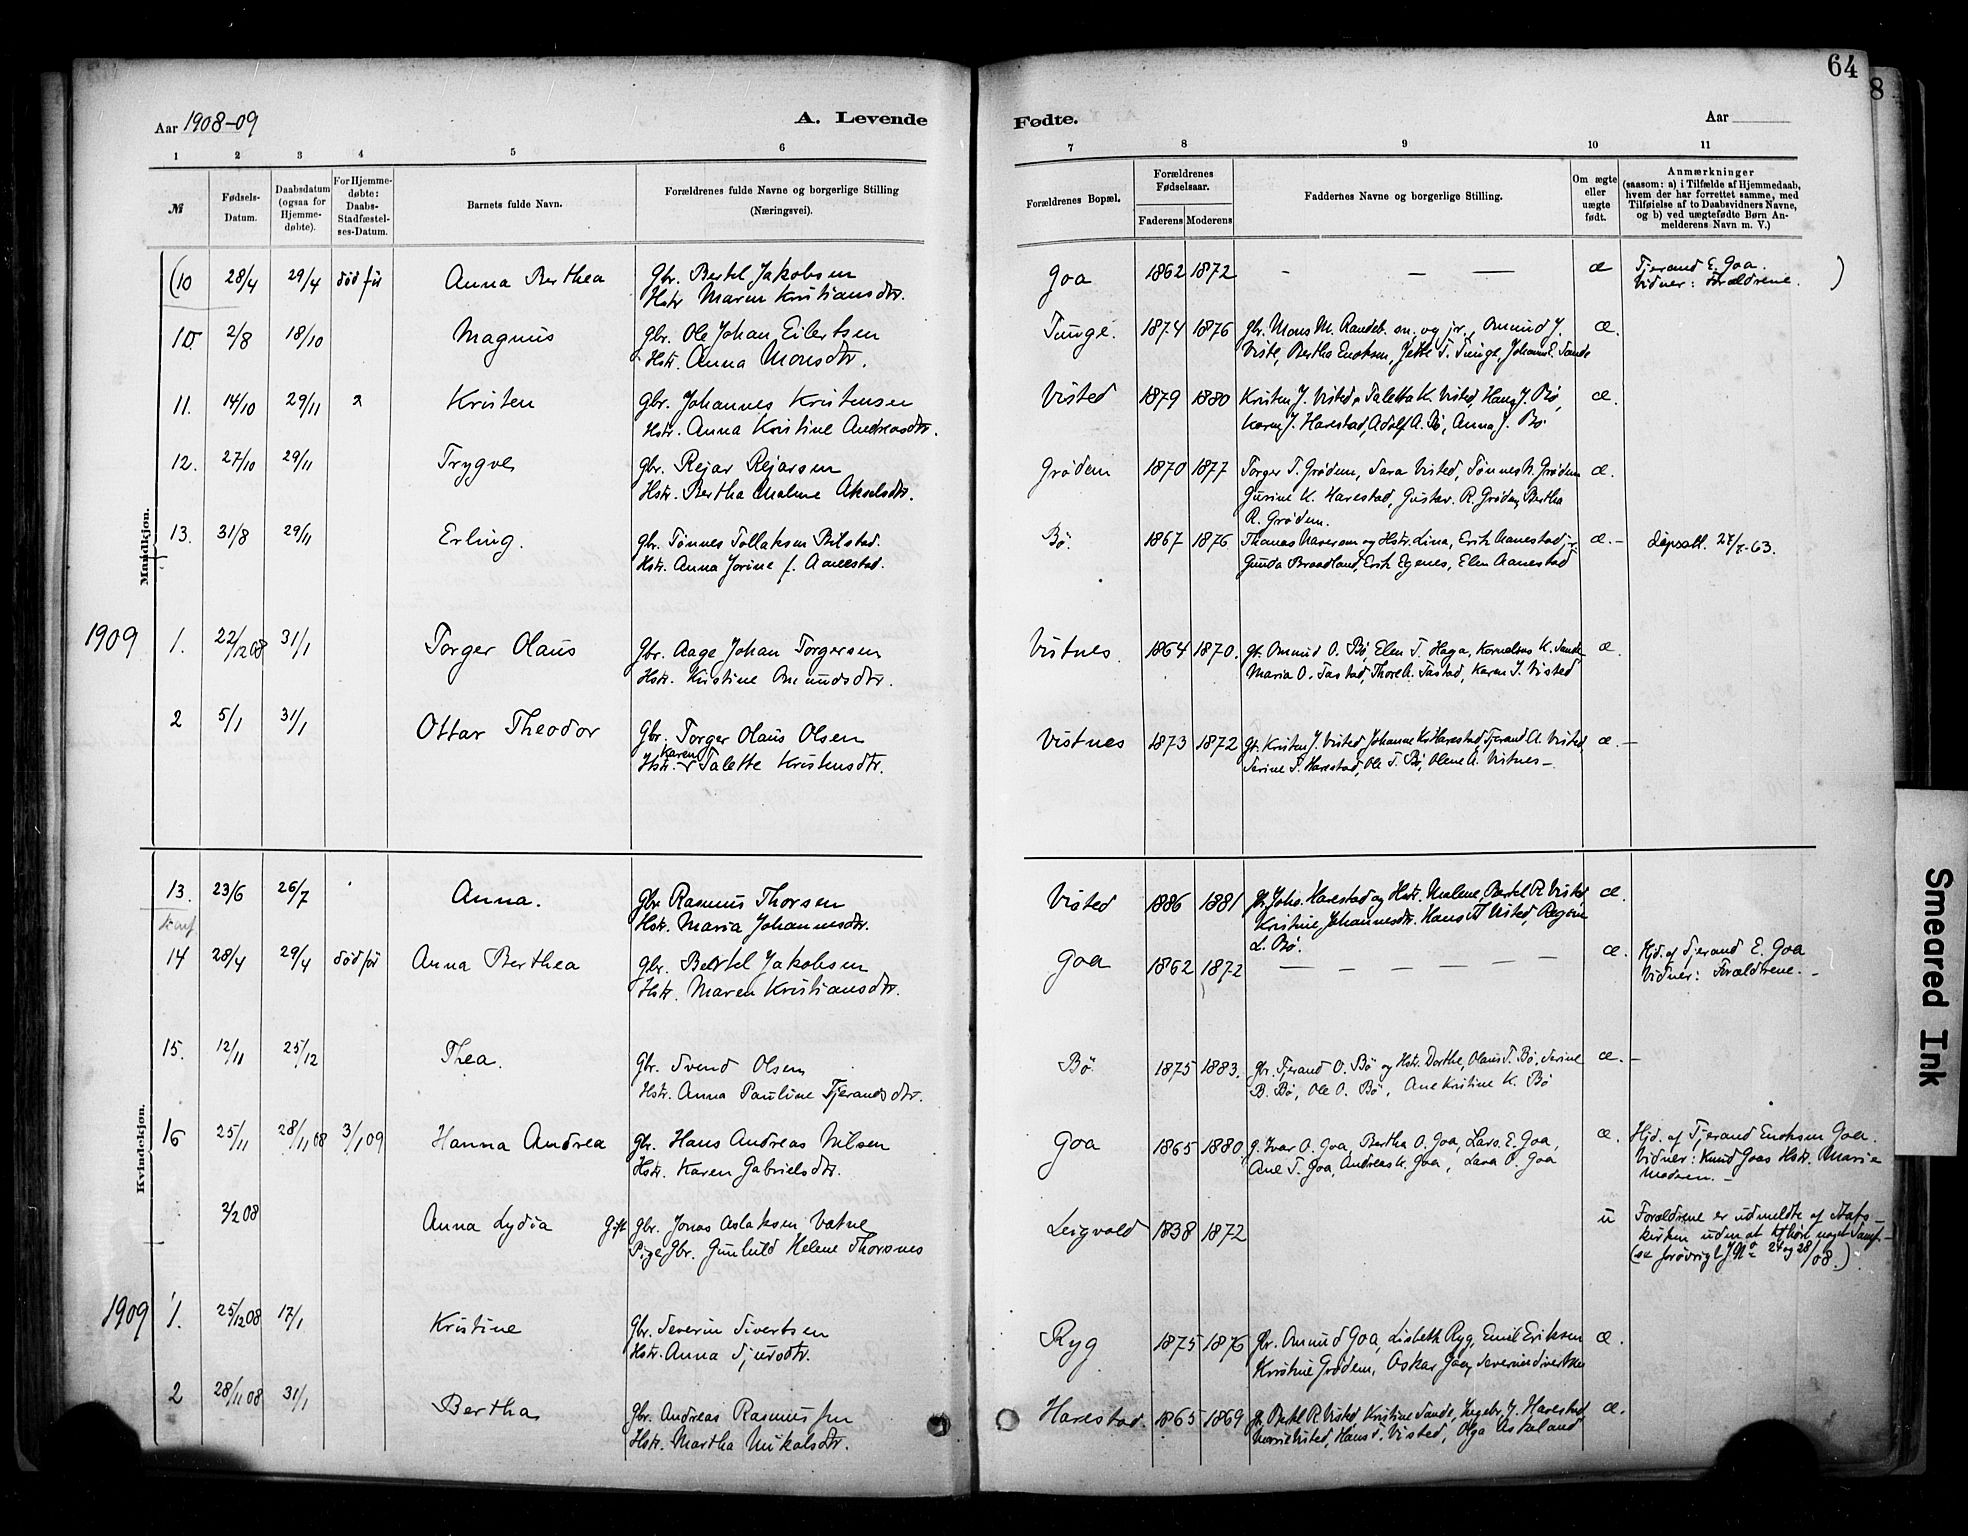 64
8
Aar 1908-09
A. Levende
Fødte.
Aar
1 2 3 4 5 6 7 8 9 10 11
№
Fødsels-
Datum.
Daabsdatum
(ogsaa for
Hjemme-
døbte).
For Hjemme-
døbte:
Daabs-
Stadfæstel-
ses-Datum.
Barnets fulde Navn.
Forældrenes fulde Navne og borgerlige Stilling
(Næringsvei).
Forældrenes Bopæl.
Forældrenes
Fødselsaar.
Faderens Moderens
Faddernes Navne og borgerlige Stilling.
Om ægte
eller
uægte
født.
Anmærkninger
(saasom: a) i Tilfælde af Hjemmedaab,
hvem der har forrettet samme, med
Tilføielse af to Daabsvidners Navne,
og b) ved uægtefødte Børn An-
melderens Navn m. V.)
Mandkjøn.
(10 28/4 29/4 død før Anna Berthea Gbr. Bertel Jakobsen Goa 1862 1872 — — — æ Tjerand E. Goa.
Hstr Maren Kristiansdtr. Vidner: Forældrene. )
10. 2/8 18/10 Magnus Gbr. Ole Johan Eilertsen Tunge. 1874 1876 gbr. Mons M. Randeb. sn. og jr., Omund J. æ.
Hstr. Anna Monsdtr. Viste, Bertha Enoksen, Jette T. Tunge, Johan E. Sande
11. 14/10 29/11 Kristen Gbr. Johannes Kristensen Visted 1879 1880 Kristen J. Visted, Taletta K. Visted, Hans J. Bø, æ.
Hstr. Anna Kristine Andreasdtr. Karen J. Harestad, Adolf A. Bø, Anna J. Bø.
12. 27/10 29/11 Trygve Gbr. Rejar Rejarsen Grødem 1870 1877 Torger T. Grødem, Sara Visted, Tønnes N. Grødem æ.
Hstr. Bertha Malene Akselsdtr. Gurine K. Harestad, Gustav. R. Grødem, Bertha
R. Grødem.
13. 31/8 29/11 Erling. Gbr. Tønnes Tollaksen Bilstad. Bø. 1867 1876 Thomas og Hstr. Lina, Erik Aanestad jr. æ. - 27/7-63.
Hstr. Anna Jorine f. Aanestad. Gunda Braadland, Erik Egenes, Elen Aanestad
1909 1. 22/12 08 31/1 Torger Olaus Gbr. Aage Johan Torgersen Vistnes. 1864 1870. gbr. Omund O. Bø, Elen T. Haga, Kornelius K. Sande æ.
Hstr. Kristine Omundsdtr. Maria O. Tastad, Thore A. Tastad, Karen T. Visted
2 5/1 31/1 Ottar Theodor Gbr. Torger Olaus Olsen Vistnes 1873 1872 gbr. Kristen J. Visted, Johanne K. Harestad, Tjerand A. Visted æ. —
Karen
Hstr. Talette Kristensdtr. Serine T. Harestad, Ole T. Bø, Olene A. Vistnes —
Kvindekjøn.
13. 23/6 26/7 Anna. Gbr Rasmus Thorsen Visted 1886 1881 gbr. Johs. Harestad og Hstr. Malene, Bertel R. Visted æ.
Hstr. Maria Johannesdtr. Kristine Johannesdtr. Hans T Visted, Regine
L. Bø.
14 28/4 29/4 død før Anna Berthea Gbr. Bertel Jakobsen Goa 1862 1872 — — — — — — æ. Hjd. af Tjerand E. Goa
Hstr. Maren Kristiansdtr. Vidner: Forældrene. -
15. 12/11 25/12 Thea. Gbr. Svend Olsen Bø. 1875 1883. gbr. Tjerand O. Bø og Hstr. Dorthe, Olaus T. Bø, Serine æ. -
Hstr. Anna Pauline Tjerandsdtr. B. Bø, Ole O. Bø, Ane Kristine K. Bø
16 25/11 28/11 08 3/1 09 Hanna Andrea Gbr. Hans Andreas Nilsen Goa 1865 1880. g. Ivar O. Goa, Bertha O. Goa, Lars. E. Goa, æ. Hjd. af Tjerand Enoksen Goa.
Hstr. Karen Gabrielsdtr. Ane T. Goa, Andreas K. Goa, Lava O. Goa Vidner: Knud Goas Hstr. Marie
Madsen. -
3/2 08 Anna Lydia Gift gbr. Jonas Aslaksen Vatne Leigvold 1838 1872 u Forældrene er udmeldte af Stats-
Pige Gbr. Gunhild Helene Thorsnes kirken uden at tilhøre noget Samf. -
(se forøvrigt J.№ 27 og 28/08.)
1909 1. 25/12 08 17/1 Kristine Gbr. Severin Sivertsen Ryg 1875 1876 gbr. Omund Goa, Lisbeth Ryg, Emil Eriksen æ.
Hstr. Anna Sjursdtr. Kristine Grødem, Oskar Goa, Severine Sivertsen
2 28/11 08 31/1 Bertha Gbr. Andreas Rasmussen Harestad. 1865 1869 gbr. Bertel R. Visted, Kristine Sande, Ingebr. J. Harestad, æ.
Hstr. Martha Nikolsdtr. Marie Visted, Hans J. Visted, Olga Askeland
Smeared Ink